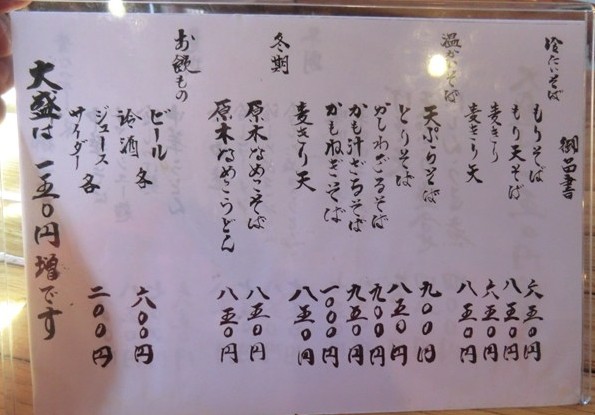 御品書
冷たいそば
もりそば 六五〇円
もり天そば 八五〇円
麦きり 六五〇円
麦きり天 八五〇円
温かいそば
天ぷらそば 九〇〇円
とりそば 八五〇円
かしわざるそば 九〇〇円
かも汁ざるそば 九五〇円
かもねぎそば 一〇〇〇円
麦きり天 八五〇円
冬期
原木なめこそば 八五〇円
原木なめこうどん 八五〇円
お飲もの
ビール
冷酒 各 六〇〇円
ジュース
サイダー 各 二〇〇円
大盛は一五〇円増です